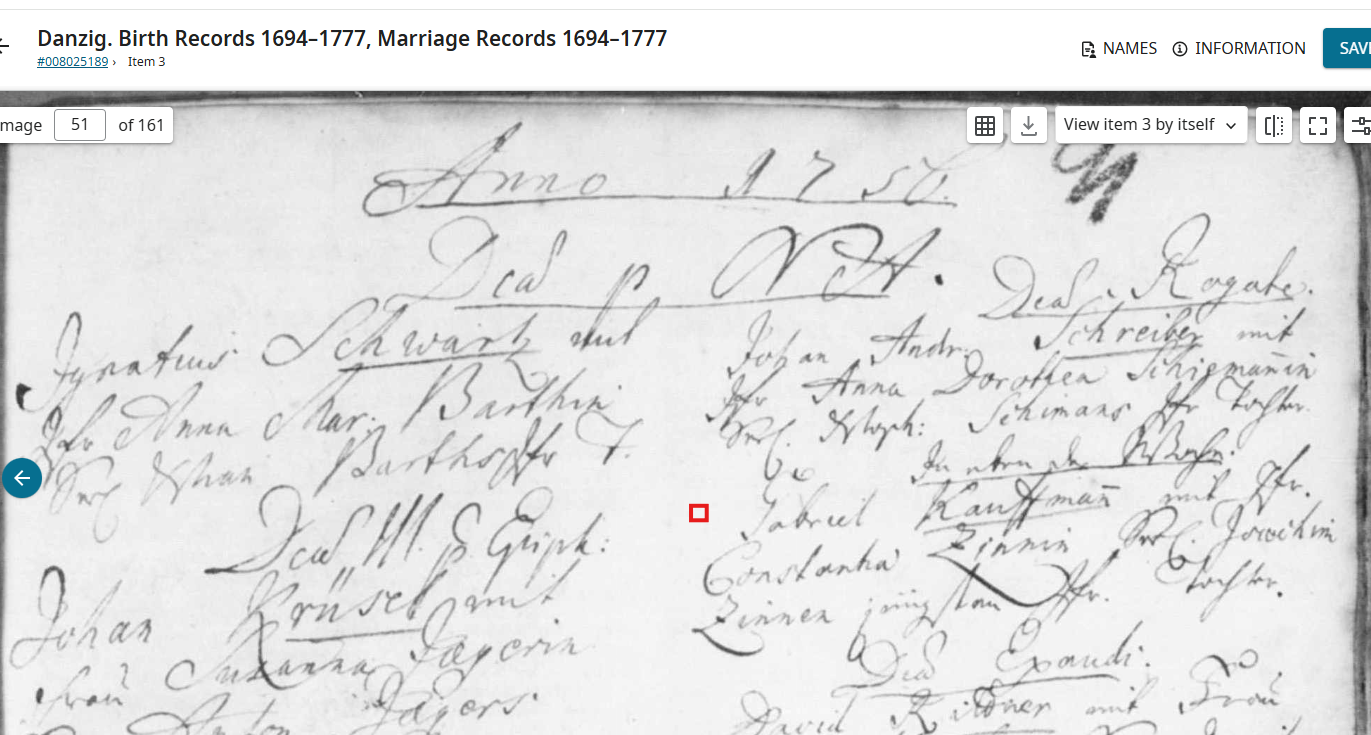 Danzig. Birth Records 1694–1777, Marriage Records 1694–1777
#008025189 › Item 3
NAMES
INFORMATION
SAV
mage 51 of 161
View item 3 by itself
Anno 1756.
p
Ignatius Schwartz mit
Jfr Anna Mar: Barthin
Barths Jfr T.
III. p. Epiph:
Johan Krüsel mit
Frau Susanna Jägerin
Anton Jägers
Rogate.
Johan Andr: Schreiber mit
Jfr Anna Dorothea Schiemañin
Schimans Jfr Tochter.
In eben der Woche.
Gabriel Kauffmañ mit Jfr.
Constantia Zinnin Joachim
Zinnen jüngsten Jfr. Tochter.
Exaudi.
David mit Frau